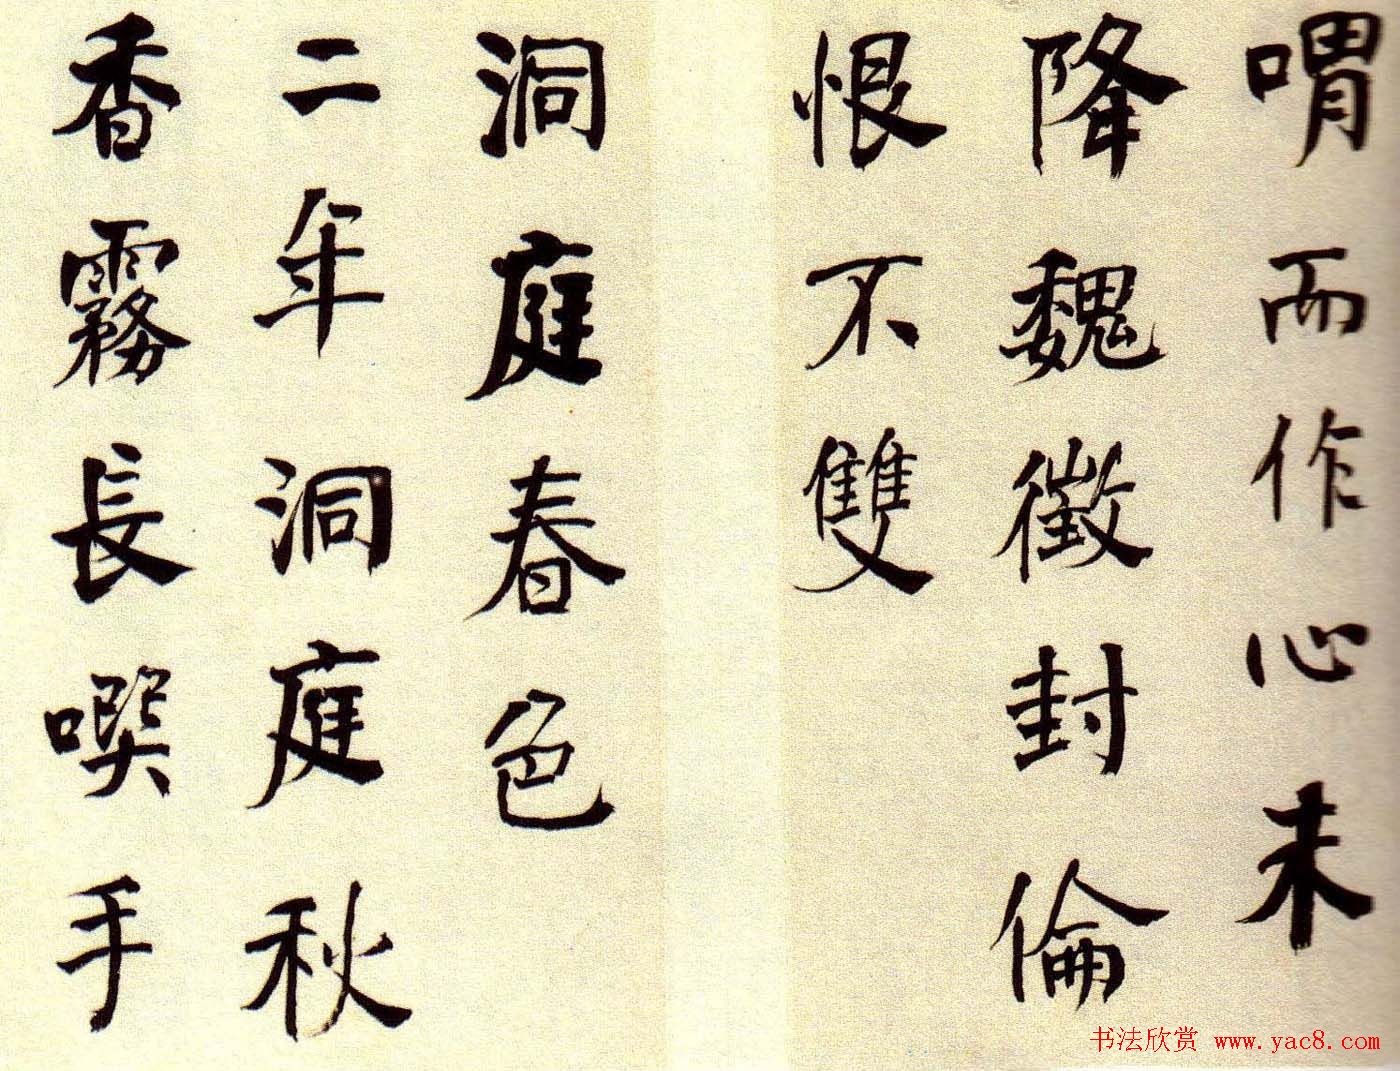 喟而作心未
降魏徵封倫
恨不雙
洞庭春色
二年洞庭秋
香霧長噀手
书法欣赏 www.yac8.com